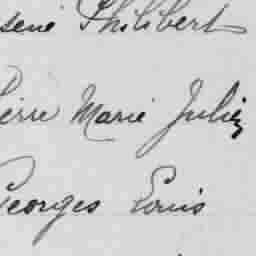 sené Philibert
ierre Marie Julien
Georges Louis